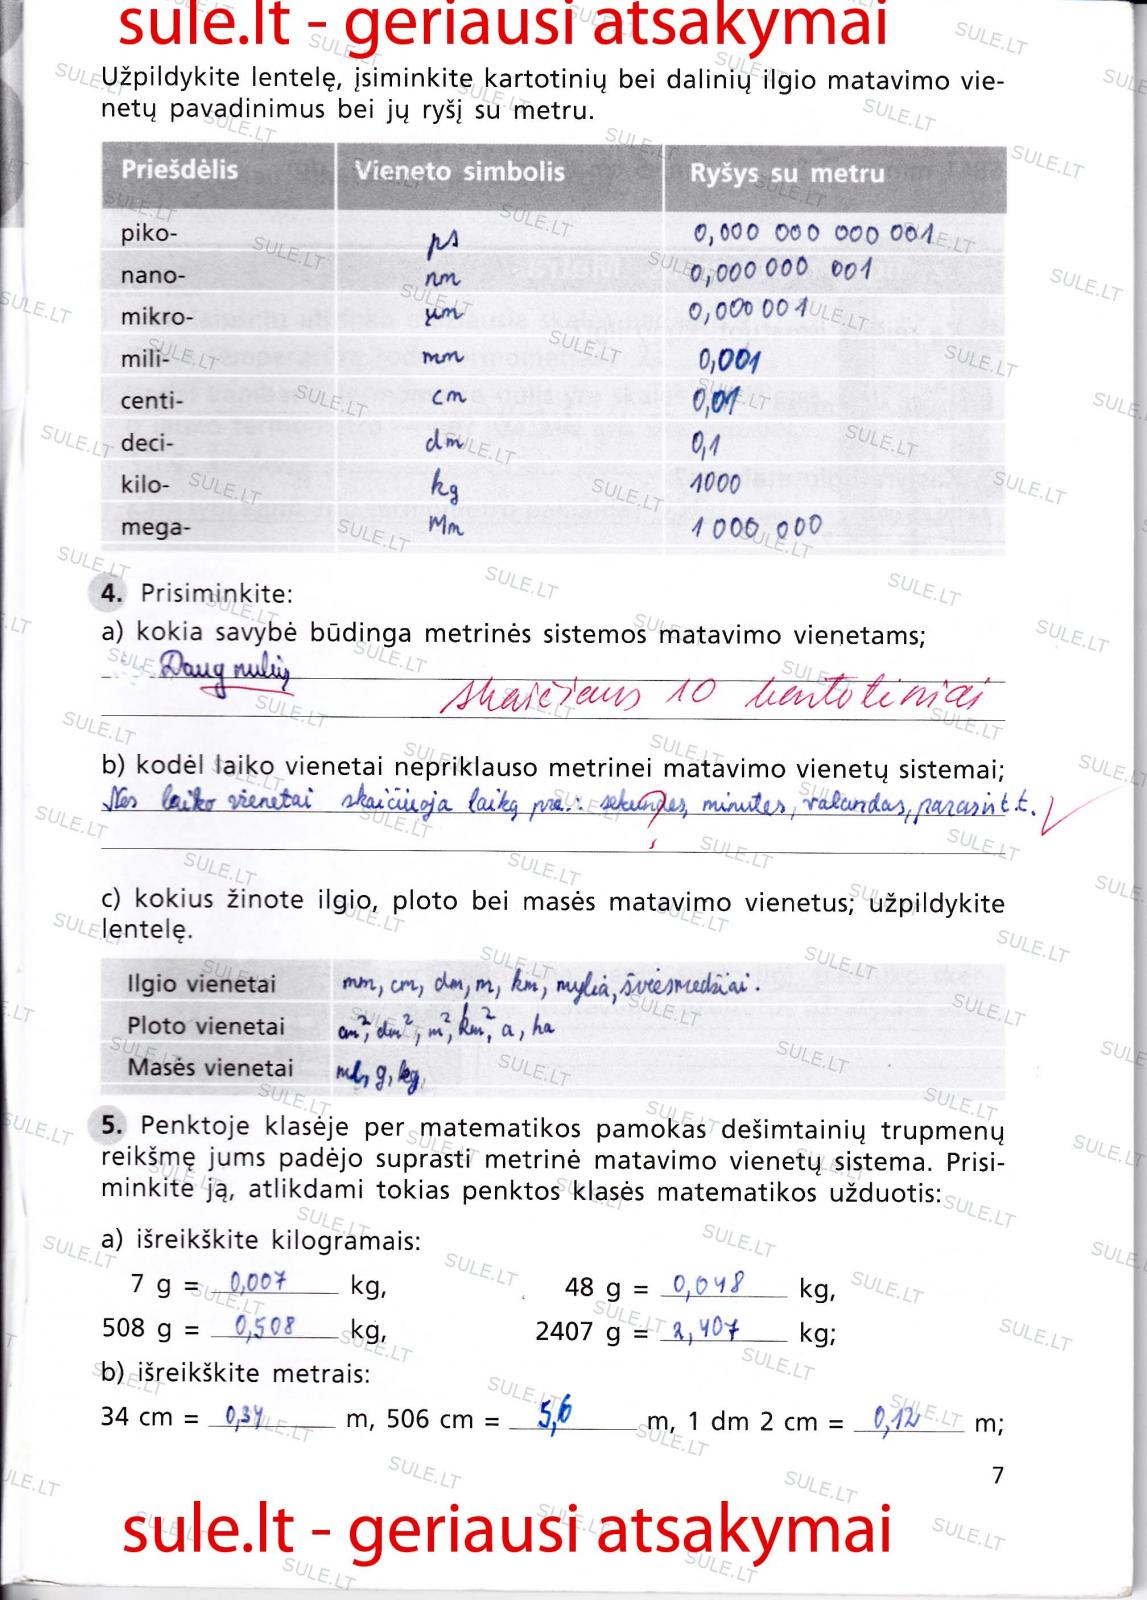 sule.lt - geriausi atsakymai
Užpildykite lentelę, įsiminkite kartotinių bei dalinių ilgio matavimo vie-
netų pavadinimus bei jų ryšį su metru.
Priešdėlis Vieneto simbolis Ryšys su metru
piko- ps 0,000 000 000 001
nano- nm 0,000 000 001
mikro- μm 0,000 001
mili- mm 0,001
centi- cm 0,01
deci- dm 0,1
kilo- kg 1000
mega- Mm 1 000 000
4. Prisiminkite:
a) kokia savybė būdinga metrinės sistemos matavimo vienetams;
Daug nulių
skaičiaus 10 kartotiniai
b) kodėl laiko vienetai nepriklauso metrinei matavimo vienetų sistemai;
Nes laiko vienetai skaičiuoja laiką pvz.: sekundes, minutes, valandas, paras ir t.t.
c) kokius žinote ilgio, ploto bei masės matavimo vienetus; užpildykite
lentelę.
Ilgio vienetai mm, cm, dm, m, km, mylia, šviesmedžiai.
Ploto vienetai cm², dm², m², km², a, ha
Masės vienetai g, kg,
5. Penktoje klasėje per matematikos pamokas dešimtainių trupmenų
reikšmę jums padėjo suprasti metrinė matavimo vienetų sistema. Prisi-
minkite ją, atlikdami tokias penktos klasės matematikos užduotis:
a) išreikškite kilogramais:
7 g = 0,007 kg, 48 g = 0,048 kg,
508 g = 0,508 kg, 2407 g = 2,407 kg;
b) išreikškite metrais:
34 cm = 0,34 m, 506 cm = 5,6 m, 1 dm 2 cm = 0,12 m;
7
sule.lt - geriausi atsakymai